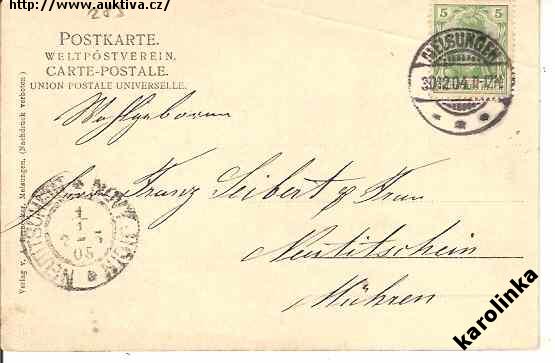 http://www.auktiva.cz/
203
POSTKARTE.
WELTPOSTVEREIN.
CARTE-POSTALE.
UNION POSTALE UNIVERSELLE.
5 5
MELSUNGEN
30.12.04. 11-12V.
Wohlgeboren
Herrn Franz Seibert & Frau
Neutitschein
Mähren
NEUTITSCHEIN
NOVÝ JIČÍN
1
1
05
Melsungen. (Nachdruck verboten)
Verlag v.
karolinka